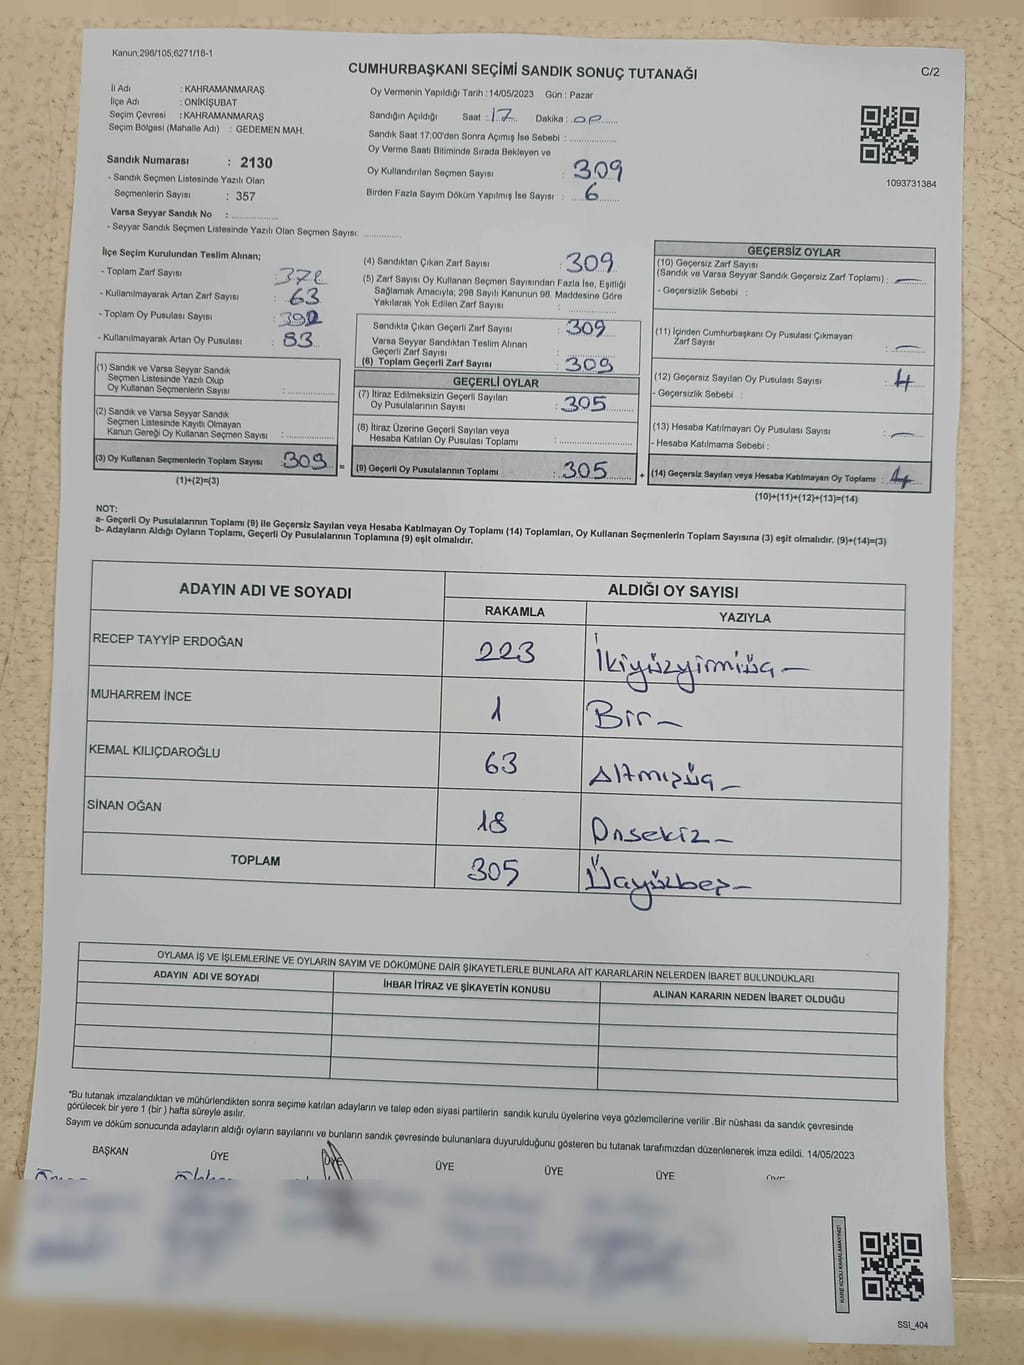 Kanun;298/105,6271/18-1
CUMHURBAŞKANI SEÇİMİ SANDIK SONUÇ TUTANAĞI
C/2
İl Adı : KAHRAMANMARAŞ
İlçe Adı : ONİKİŞUBAT
Seçim Çevresi : KAHRAMANMARAŞ
Seçim Bölgesi (Mahalle Adı) : GEDEMEN MAH.
Sandık Numarası : 2130
- Sandık Seçmen Listesinde Yazılı Olan
Seçmenlerin Sayısı : 357
Varsa Seyyar Sandık No :
- Seyyar Sandık Seçmen Listesinde Yazılı Olan Seçmen Sayısı:
Oy Vermenin Yapıldığı Tarih : 14/05/2023 Gün : Pazar
Sandığın Açıldığı Saat : 17 Dakika :
Sandık Saat 17:00'den Sonra Açımış İse Sebebi :
Oy Verme Saati Bitiminde Sırada Bekleyen ve
Oy Kullandırılan Seçmen Sayısı : 309
Birden Fazla Sayım Döküm Yapılmış İse Sayısı : 6
1093731384
İlçe Seçim Kurulundan Teslim Alınan;
- Toplam Zarf Sayısı : 372
- Kullanılmayarak Artan Zarf Sayısı : 63
- Toplam Oy Pusulası Sayısı :
- Kullanılmayarak Artan Oy Pusulası : 83
(1) Sandık ve Varsa Seyyar Sandık
Seçmen Listesinde Yazılı Olup
Oy Kullanan Seçmenlerin Sayısı :
(2) Sandık ve Varsa Seyyar Sandık
Seçmen Listesinde Kayıtlı Olmayan
Kanun Gereği Oy Kullanan Seçmen Sayısı :
(3) Oy Kullanan Seçmenlerin Toplam Sayısı 309 =
(1)+(2)=(3)
(4) Sandıktan Çıkan Zarf Sayısı : 309
(5) Zarf Sayısı Oy Kullanan Seçmen Sayısından Fazla İse, Eşitliği
Sağlamak Amacıyla, 298 Sayılı Kanunun 98. Maddesine Göre
Yakılarak Yok Edilen Zarf Sayısı :
Sandıkta Çıkan Geçerli Zarf Sayısı : 309
Varsa Seyyar Sandıktan Teslim Alınan
Geçerli Zarf Sayısı :
(6) Toplam Geçerli Zarf Sayısı : 309
GEÇERLİ OYLAR
(7) İtiraz Edilmeksizin Geçerli Sayılan
Oy Pusulalarının Sayısı : 305
(8) İtiraz Üzerine Geçerli Sayılan veya
Hesaba Katılan Oy Pusulası Toplamı :
(9) Geçerli Oy Pusulalarının Toplamı : 305 +
GEÇERSİZ OYLAR
(10) Geçersiz Zarf Sayısı
(Sandık ve Varsa Seyyar Sandık Geçersiz Zarf Toplamı) : —
- Geçersizlik Sebebi :
(11) İçinden Cumhurbaşkanı Oy Pusulası Çıkmayan
Zarf Sayısı : —
(12) Geçersiz Sayılan Oy Pusulası Sayısı : 4
- Geçersizlik Sebebi :
(13) Hesaba Katılmayan Oy Pusulası Sayısı : —
- Hesaba Katılmama Sebebi :
(14) Geçersiz Sayılan veya Hesaba Katılmayan Oy Toplamı : 4
(10)+(11)+(12)+(13)=(14)
NOT:
a- Geçerli Oy Pusulalarının Toplamı (9) ile Geçersiz Sayılan veya Hesaba Katılmayan Oy Toplamı (14) Toplamları, Oy Kullanan Seçmenlerin Toplam Sayısına (3) eşit olmalıdır. (9)+(14)=(3)
b- Adayların Aldığı Oyların Toplamı, Geçerli Oy Pusulalarının Toplamına (9) eşit olmalıdır.
ADAYIN ADI VE SOYADI ALDIĞI OY SAYISI
RAKAMLA YAZIYLA
RECEP TAYYİP ERDOĞAN 223 İkiyüzyirmiüç —
MUHARREM İNCE 1 Bir —
KEMAL KILIÇDAROĞLU 63 Altmışüç —
SİNAN OĞAN 18 Onsekiz —
TOPLAM 305 Üçyüzbeş —
OYLAMA İŞ VE İŞLEMLERİNE VE OYLARIN SAYIM VE DÖKÜMÜNE DAİR ŞİKAYETLERLE BUNLARA AİT KARARLARIN NELERDEN İBARET BULUNDUKLARI
ADAYIN ADI VE SOYADI İHBAR İTİRAZ VE ŞİKAYETİN KONUSU ALINAN KARARIN NEDEN İBARET OLDUĞU
*Bu tutanak imzalandıktan ve mühürlendikten sonra seçime katılan adayların ve talep eden siyasi partilerin sandık kurulu üyelerine veya gözlemcilerine verilir .Bir nüshası da sandık çevresinde
görülecek bir yere 1 (bir ) hafta süreyle asılır.
Sayım ve döküm sonucunda adayların aldığı oyların sayılarını ve bunların sandık çevresinde bulunanlara duyurulduğunu gösteren bu tutanak tarafımızdan düzenlenerek imza edildi. 14/05/2023
BAŞKAN ÜYE ÜYE ÜYE ÜYE ÜYE ÜYE
SSI_404